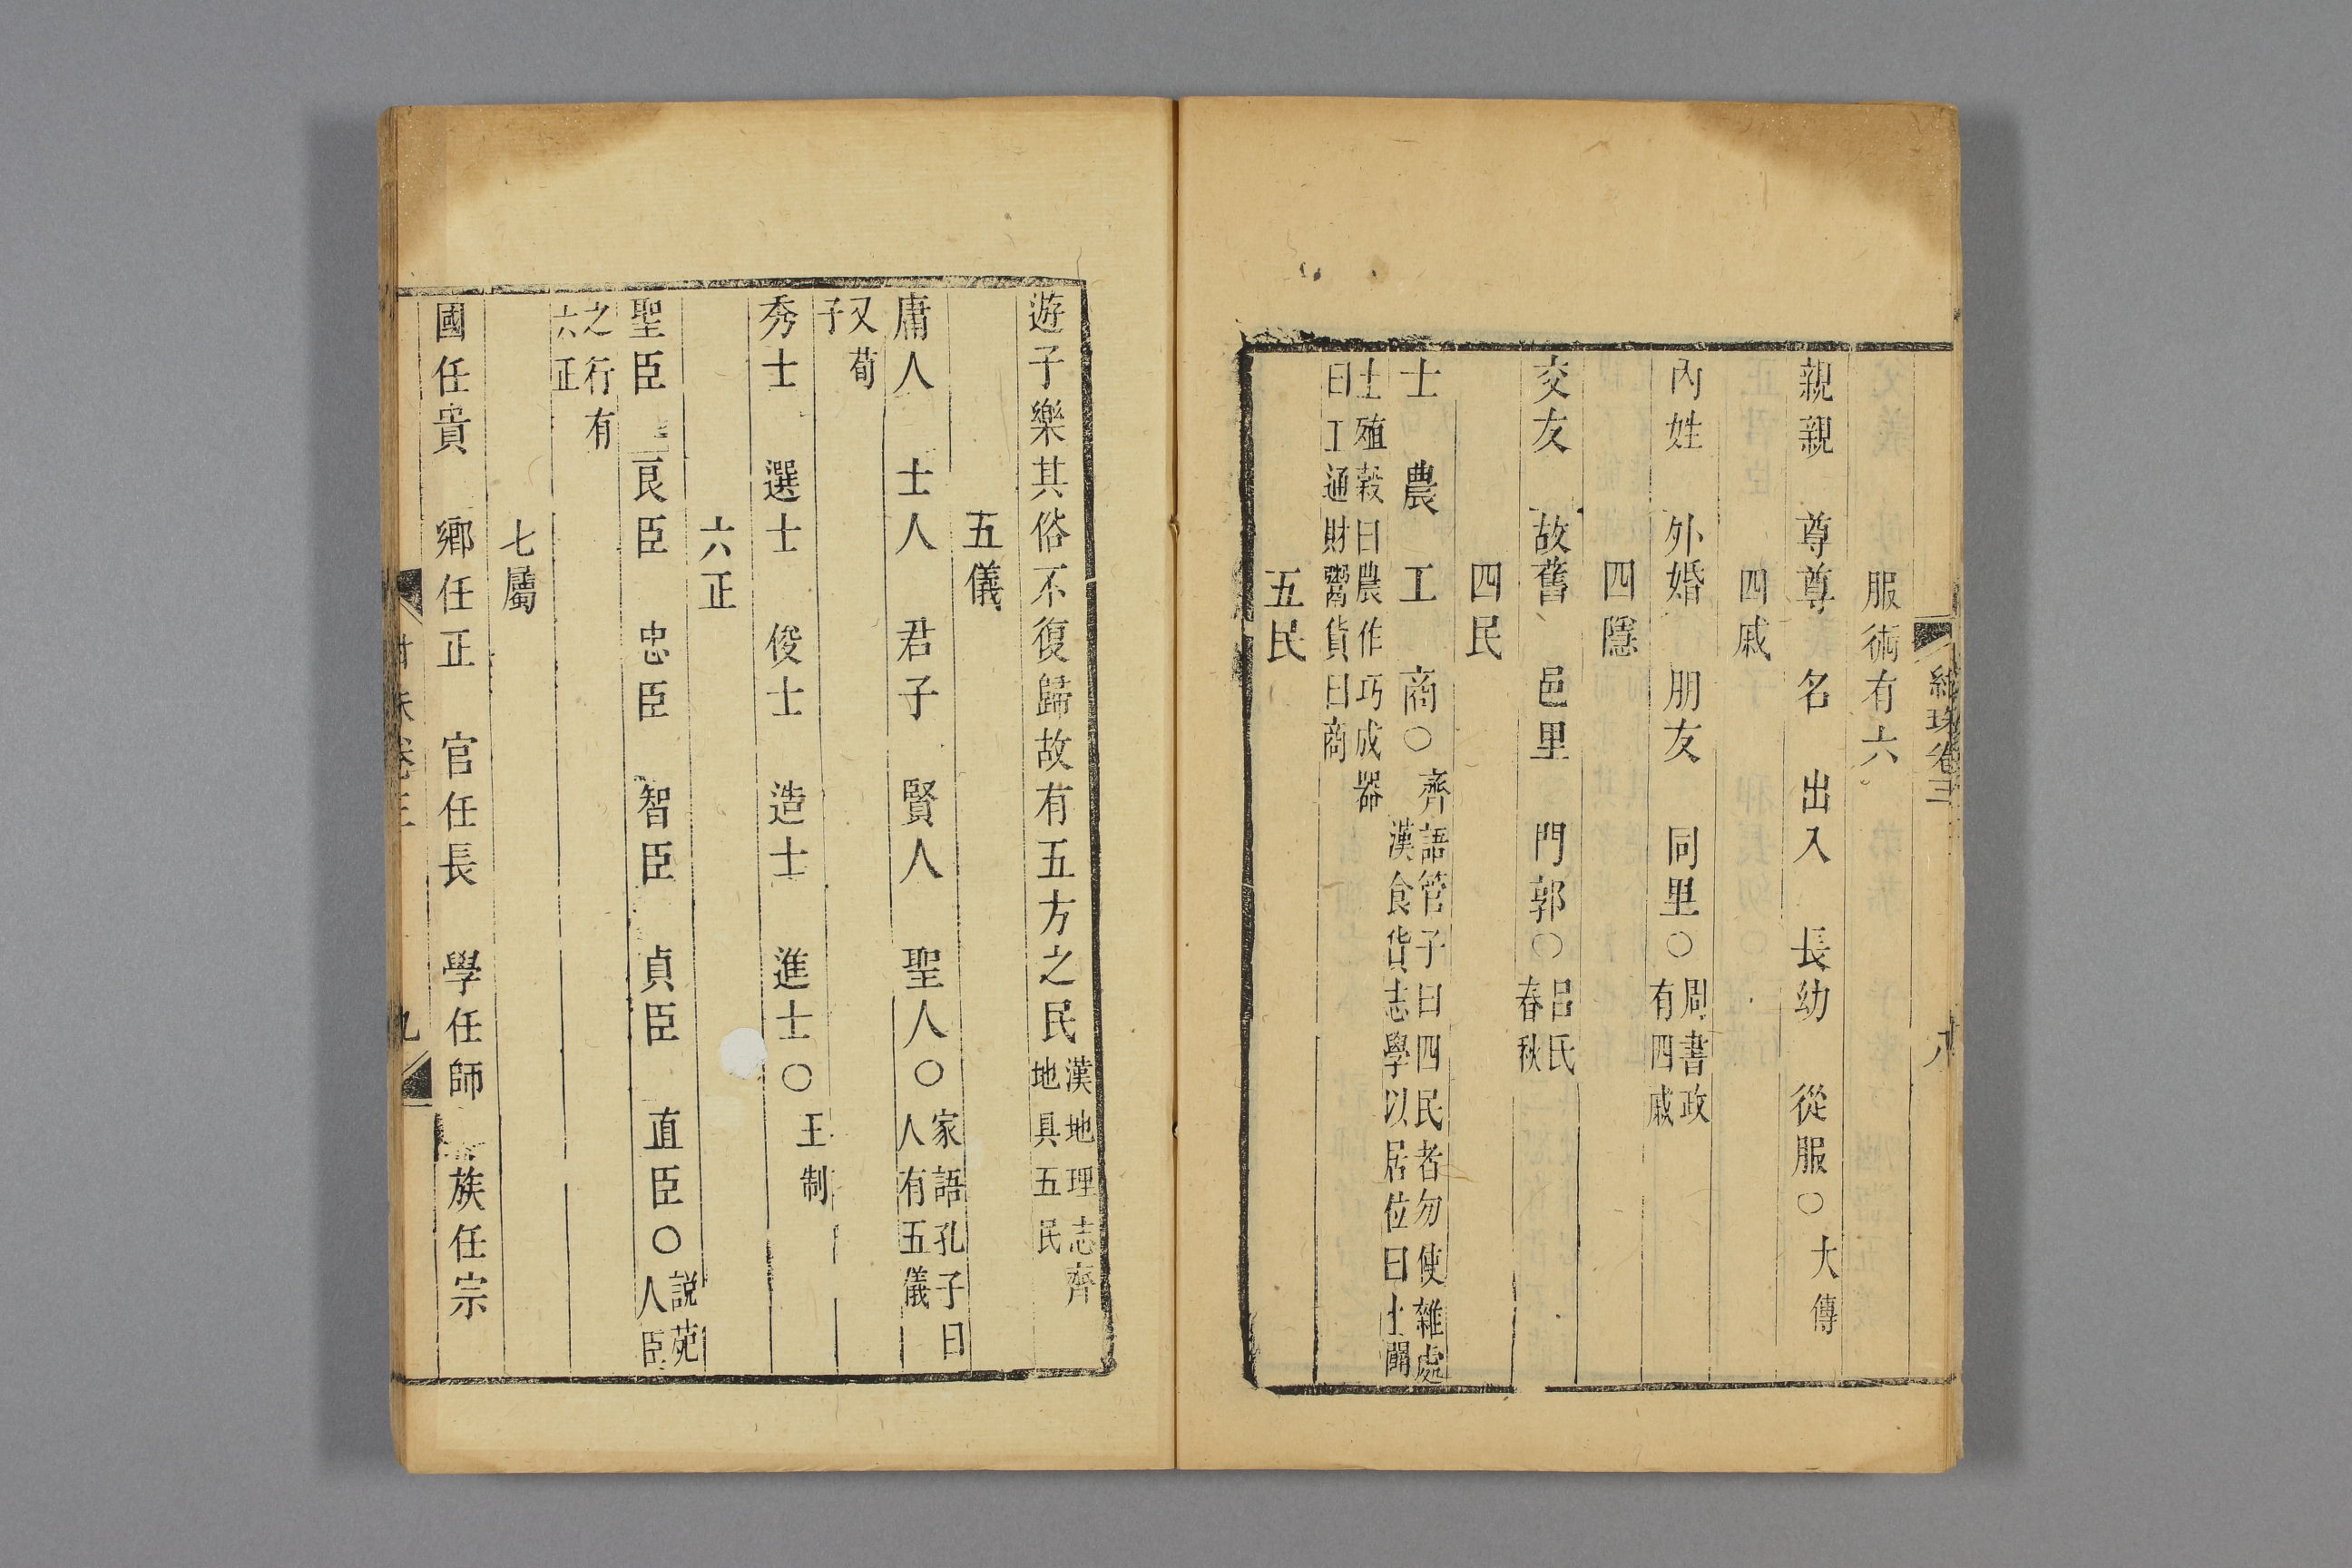 紺珠卷三 八
服術有六
親親 尊尊 名 出入 長幼 從服○大傳
四戚
內姓 外婚 朋友 同里○周書政
有四戚
四隱
交友 故舊 邑里 門郭○呂氏
春秋
四民
士 農 工 商○齊語管子曰四民者勿使雜處
漢食貨志學以居位曰士闢
土殖穀曰農作巧成器
曰工通財鬻貨曰商
五民
遊子樂其俗不復歸故有五方之民漢地理志齊
地具五民
五儀
庸人 士人 君子 賢人 聖人○家語孔子曰
人有五儀
又荀
子
秀士 選士 俊士 造士 進士○王制
六正
聖臣 良臣 忠臣 智臣 貞臣 直臣○說苑
人臣
之行有
六正
七屬
國任貴 鄉任正 官任長 學任師 族任宗
卷三 九